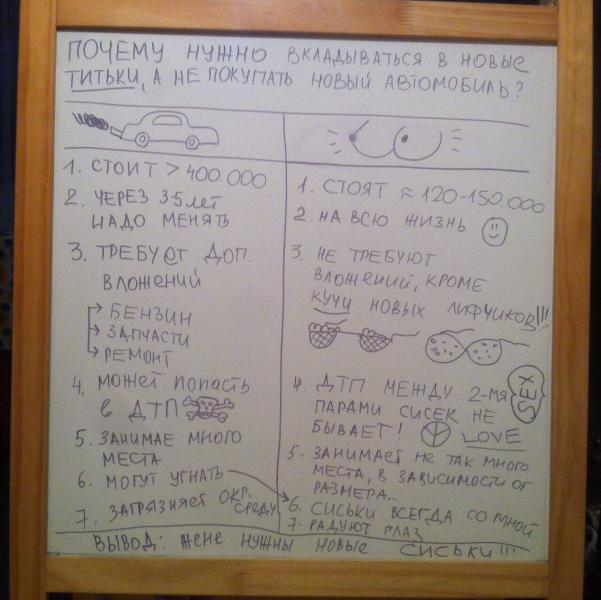 ПОЧЕМУ НУЖНО ВКЛАДЫВАТЬСЯ В НОВЫЕ
ТИТЬКИ, А НЕ ПОКУПАТЬ НОВЫЙ АВТОМОБИЛЬ?
1. СТОИТ > 400.000
2. ЧЕРЕЗ 3-5 лет
НАДО МЕНЯТЬ
3. ТРЕБУЕТ ДОП.
ВЛОЖЕНИЙ
БЕНЗИН
ЗАПЧАСТИ
РЕМОНТ
4, МОЖЕТ ПОПАСТЬ
в ДТП
5. ЗАНИМАЕ МНОГО
МЕСТА
6. МОГУТ УГНАТЬ
7. ЗАГРЯЗНЯЕТ ОКР.
СРЕДУ
1. СТОЯТ ≈ 120-150.000
2. НА ВСЮ ЖИЗНЬ
3. НЕ ТРЕБУЮТ
ВЛОЖЕНИЙ, КРОМЕ
КУЧИ НОВЫХ ЛИФЧИКОВ!!!
4. ДТП МЕЖДУ 2-МЯ
SEX
ПАРАМИ СИСЕК НЕ
БЫВАЕТ! LOVE
5. ЗАНИМАЕТ НЕ ТАК МНОГО
МЕСТА, В ЗАВИСИМОСТИ ОТ
РАЗМЕРА...
6. СИСЬКИ ВСЕГДА СО МНОЙ
7. РАДУЮТ ГЛАЗ
ВЫВОД: ЖЕНЕ НУЖНЫ НОВЫЕ СИСЬКИ!!!